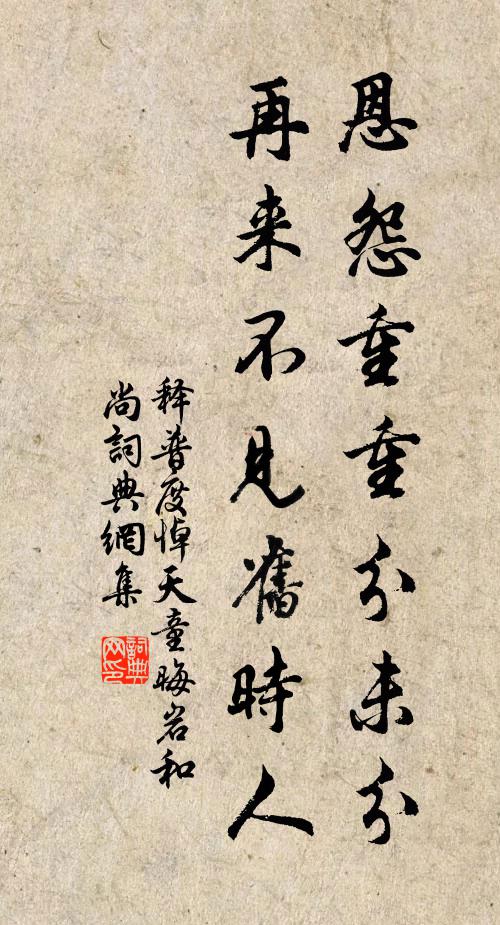 恩怨重重分未分
再来不見舊時人
释普度悼天童晦岩和
尚詞典網集
詞典
网印